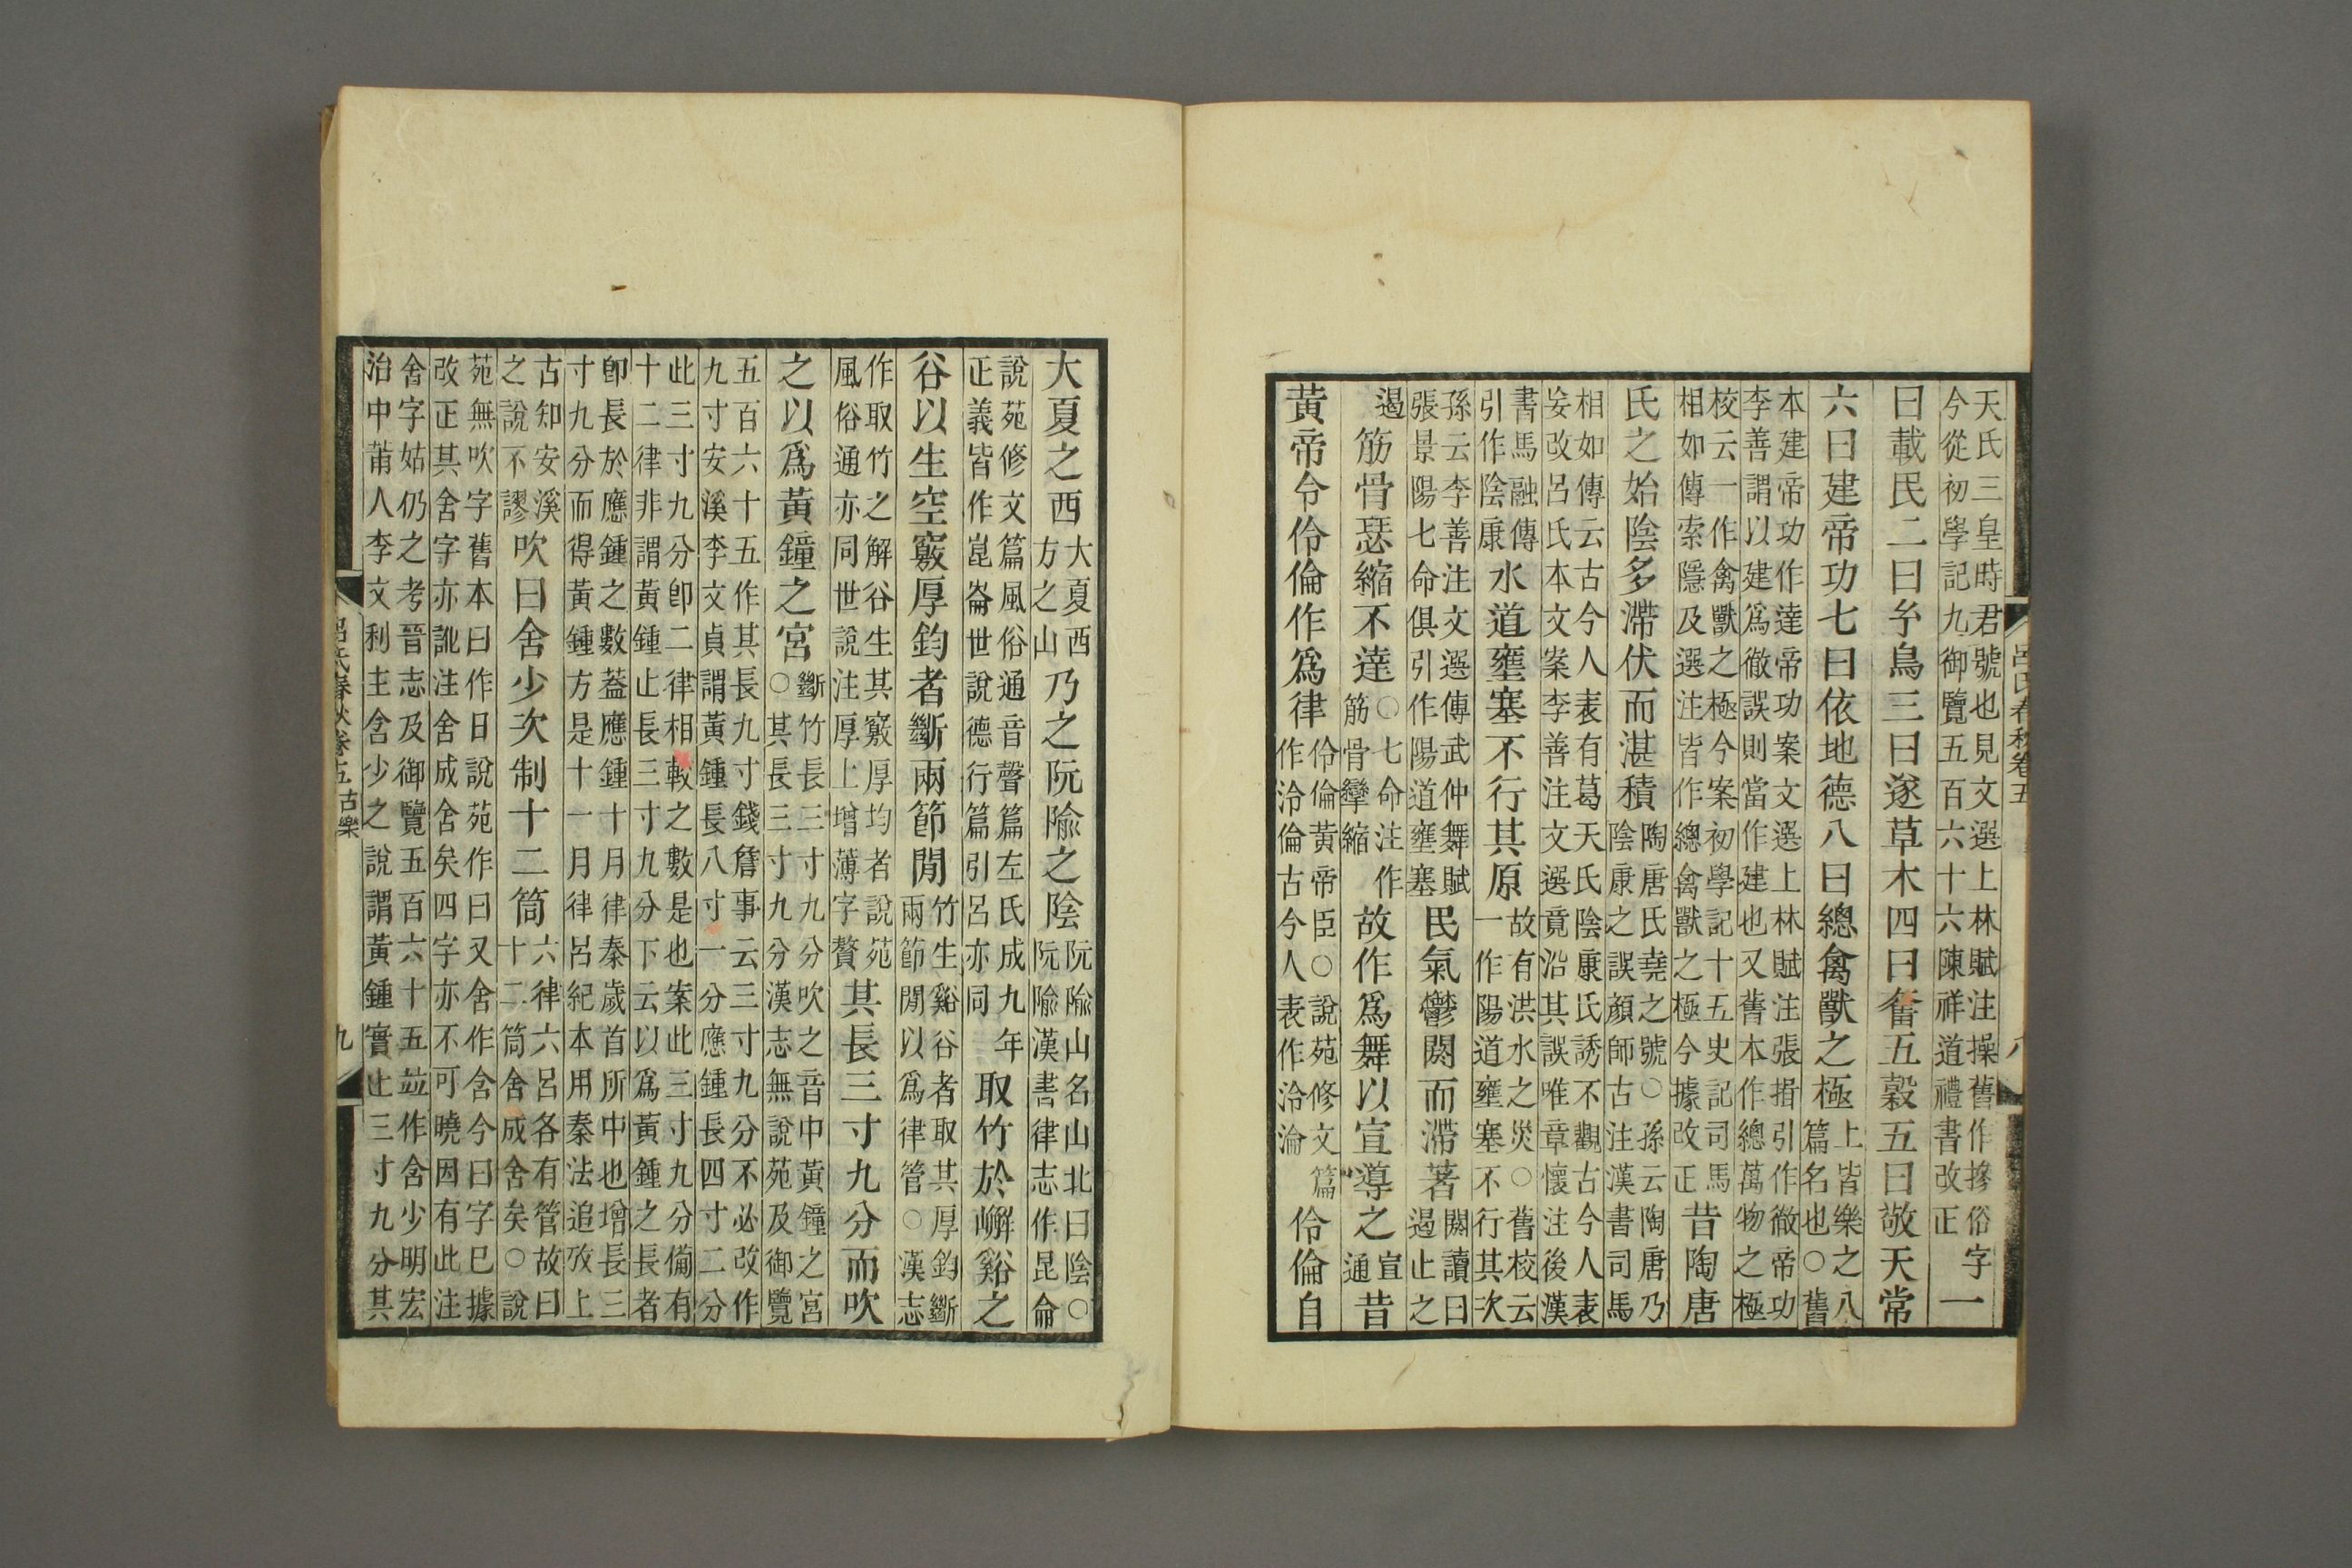 天氏三皇時君號也見文選上林賦注操舊作摻俗字今從初學記九御覽五百六十六陳祥道禮書改正一
曰載民二曰玄鳥三曰遂草木四曰奮五穀五曰敬天常
六曰建帝功七曰依地德八曰總禽獸之極上皆樂之八篇名也○舊
本建帝功作達帝功案文選上林賦注張揖引作徹帝功李善謂以建爲徹誤則當作建也又舊本作總萬物之極
校云一作禽獸之極今案初學記十五史記司馬相如傳索隱及選注皆作總禽獸之極今據改正昔陶唐
氏之始陰多滯伏而湛積陶唐氏堯之號○孫云陶唐乃陰康之誤顏師古注漢書司馬
相如傳云古今人表有葛天氏陰康氏誘不觀古今人表妄改呂氏本文案李善注文選竟沿其誤唯章懷注後漢
書馬融傳引作陰康水道壅塞不行其原故有洪水之災○舊校云一作陽道壅塞不行其次
孫云李善注文選傅武仲舞賦張景陽七命俱引作陽道壅塞民氣鬱閼而滯著閼讀曰遏止之
遏筋骨瑟縮不達○七命注作筋骨攣縮故作爲舞以宣導之宣通昔
黃帝令伶倫作爲律伶倫黃帝臣○說苑修文篇作泠倫古今人表作泠淪伶倫自
呂氏春秋卷五 八
大夏之西大夏西方之山乃之阮隃之陰阮隃山名山北曰陰○阮隃漢書律志作昆侖
說苑修文篇風俗通音聲篇左氏成九年正義皆作崑崙世說德行篇引呂亦同取竹於嶰谿之
谷以生空竅厚鈞者斷兩節閒竹生谿谷者取其厚鈞斷兩節閒以爲律管○漢志
作取竹之解谷生其竅厚均者說苑風俗通亦同世說注厚上增薄字贅其長三寸九分而吹
之以爲黃鐘之宮斷竹長三寸九分吹之音中黃鐘之宮○其長三寸九分漢志無說苑及御覽
五百六十五作其長九寸錢詹事云三寸九分不必改作九寸安溪李文貞謂黃鍾長八寸一分應鍾長四寸二分
此三寸九分卽二律相較之數是也案此三寸九分備有十二律非謂黃鍾止長三寸九分下云以爲黃鍾之長者
卽長於應鍾之數葢應鍾十月律秦歲首所中也增長三寸九分而得黃鍾方是十一月律呂紀本用秦法追攷上
古知安溪之說不謬吹曰舍少次制十二筒六律六呂各有管故曰十二筒舍成舍矣○說
苑無吹字舊本曰作日說苑作曰又舍作含今曰字已據改正其舍字亦訛注舍成舍矣四字亦不可曉因有此注
舍字姑仍之考晉志及御覽五百六十五竝作含少明宏治中莆人李文利主含少之說謂黃鍾實止三寸九分其
呂氏春秋卷五 古樂 九